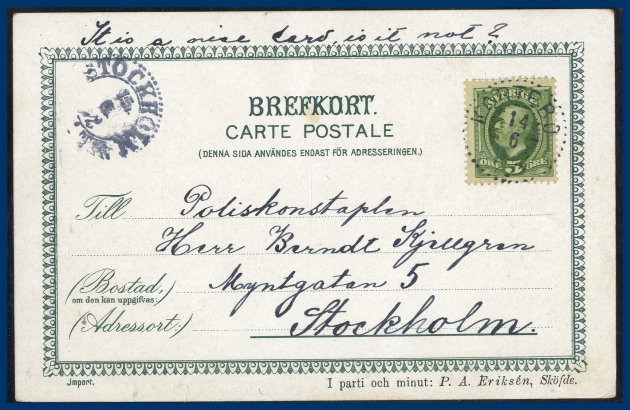 It is a nise card, is it not?
STOCKHOLM
BREFKORT.
CARTE POSTALE
(DENNA SIDA ANVÄNDES ENDAST FÖR ADRESSERINGEN.)
SVERIGE
14
6
ÖRE 5 ÖRE
Till Poliskonstaplen
Herr Berndt Kjellgren
(Bostad, Myntgatan 5
om den kan uppgifvas:)
(Adressort:) Stockholm.
Import.
I parti och minut: P. A. Eriksén, Sköfde.